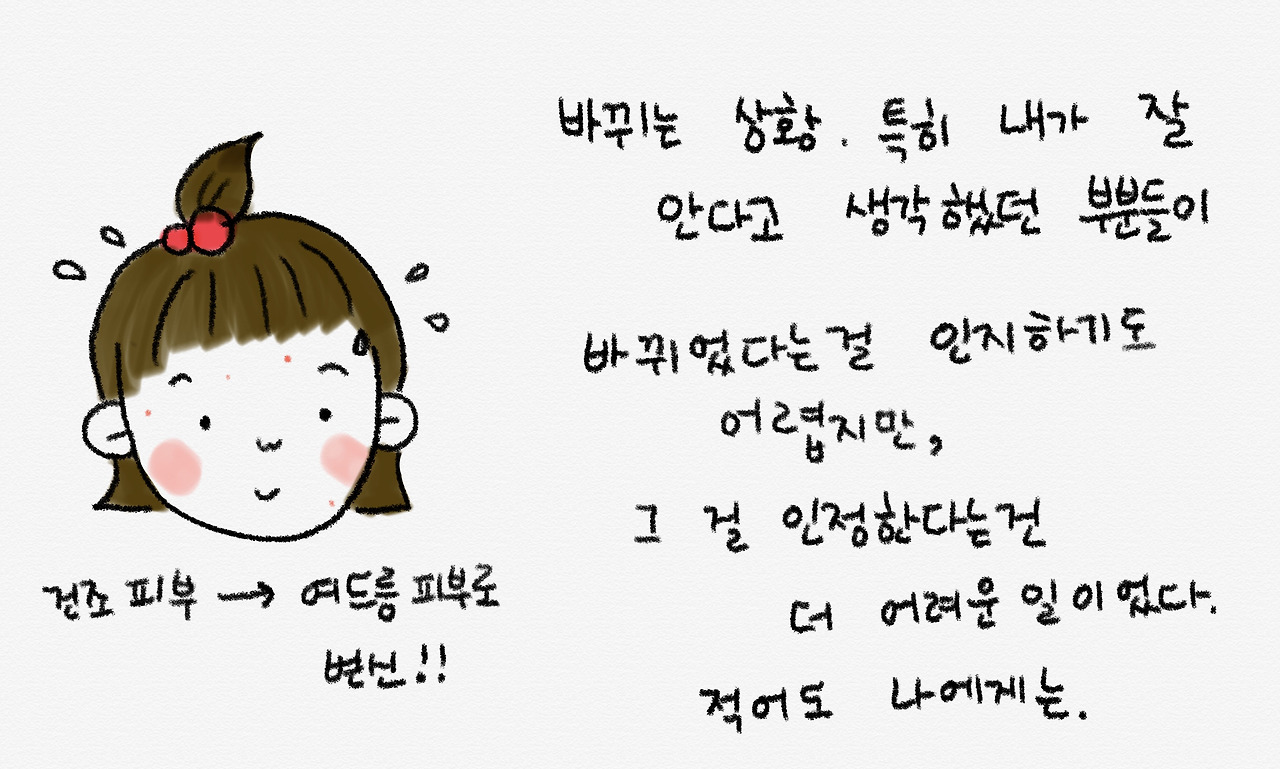 바뀌는 상황. 특히 내가 잘
안다고 생각했던 부분들이
바뀌었다는걸 인지하기도
어렵지만,
그 걸 인정한다는건
더 어려운 일이었다.
적어도 나에게는.
건조 피부 → 여드름 피부로
변신!!